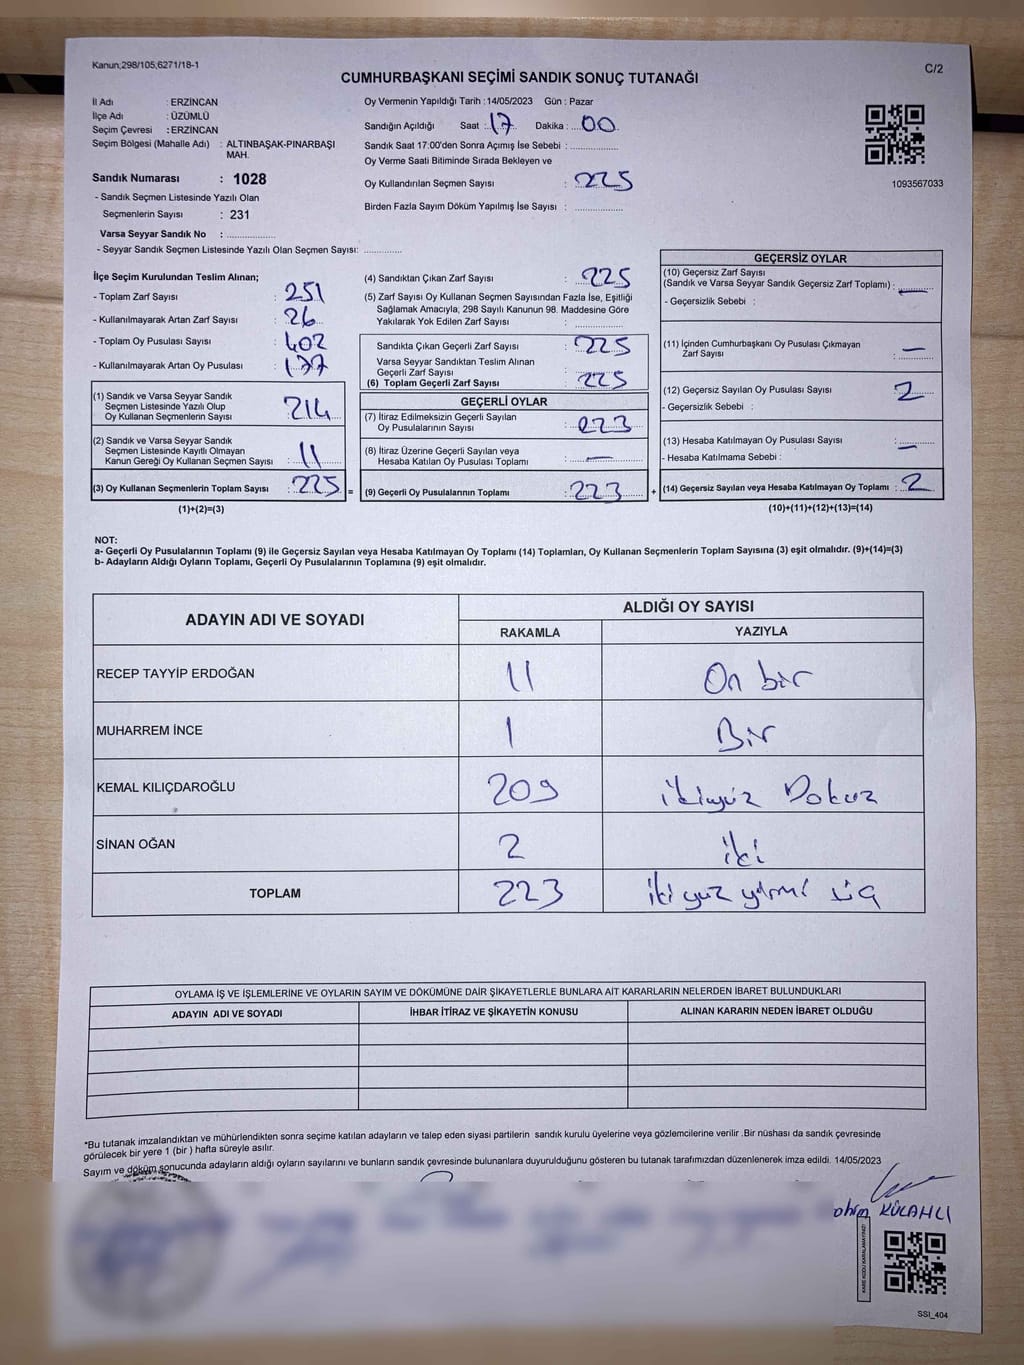 Kanun;298/105;6271/18-1
C/2
CUMHURBAŞKANI SEÇİMİ SANDIK SONUÇ TUTANAĞI
İl Adı : ERZİNCAN
İlçe Adı : ÜZÜMLÜ
Seçim Çevresi : ERZİNCAN
Seçim Bölgesi (Mahalle Adı) : ALTINBAŞAK-PINARBAŞI
MAH.
Sandık Numarası : 1028
- Sandık Seçmen Listesinde Yazılı Olan
Seçmenlerin Sayısı : 231
Varsa Seyyar Sandık No :
- Seyyar Sandık Seçmen Listesinde Yazılı Olan Seçmen Sayısı:
Oy Vermenin Yapıldığı Tarih : 14/05/2023 Gün : Pazar
Sandığın Açıldığı Saat : 17 Dakika : 00
Sandık Saat 17:00'den Sonra Açımış İse Sebebi :
Oy Verme Saati Bitiminde Sırada Bekleyen ve
Oy Kullandırılan Seçmen Sayısı : 225
Birden Fazla Sayım Döküm Yapılmış İse Sayısı :
1093567033
İlçe Seçim Kurulundan Teslim Alınan;
- Toplam Zarf Sayısı : 251
- Kullanılmayarak Artan Zarf Sayısı : 26
- Toplam Oy Pusulası Sayısı : 402
- Kullanılmayarak Artan Oy Pusulası : 177
(1) Sandık ve Varsa Seyyar Sandık
Seçmen Listesinde Yazılı Olup
Oy Kullanan Seçmenlerin Sayısı : 214
(2) Sandık ve Varsa Seyyar Sandık
Seçmen Listesinde Kayıtlı Olmayan
Kanun Gereği Oy Kullanan Seçmen Sayısı : 11
(3) Oy Kullanan Seçmenlerin Toplam Sayısı : 225 =
(1)+(2)=(3)
(4) Sandıktan Çıkan Zarf Sayısı : 225
(5) Zarf Sayısı Oy Kullanan Seçmen Sayısından Fazla İse, Eşitliği
Sağlamak Amacıyla; 298 Sayılı Kanunun 98. Maddesine Göre
Yakılarak Yok Edilen Zarf Sayısı :
Sandıkta Çıkan Geçerli Zarf Sayısı : 225
Varsa Seyyar Sandıktan Teslim Alınan
Geçerli Zarf Sayısı :
(6) Toplam Geçerli Zarf Sayısı : 225
GEÇERLİ OYLAR
(7) İtiraz Edilmeksizin Geçerli Sayılan
Oy Pusulalarının Sayısı : 223
(8) İtiraz Üzerine Geçerli Sayılan veya
Hesaba Katılan Oy Pusulası Toplamı : —
(9) Geçerli Oy Pusulalarının Toplamı : 223 +
GEÇERSİZ OYLAR
(10) Geçersiz Zarf Sayısı
(Sandık ve Varsa Seyyar Sandık Geçersiz Zarf Toplamı) : —
- Geçersizlik Sebebi :
(11) İçinden Cumhurbaşkanı Oy Pusulası Çıkmayan
Zarf Sayısı : —
(12) Geçersiz Sayılan Oy Pusulası Sayısı : 2
- Geçersizlik Sebebi :
(13) Hesaba Katılmayan Oy Pusulası Sayısı : —
- Hesaba Katılmama Sebebi :
(14) Geçersiz Sayılan veya Hesaba Katılmayan Oy Toplamı : 2
(10)+(11)+(12)+(13)=(14)
NOT:
a- Geçerli Oy Pusulalarının Toplamı (9) ile Geçersiz Sayılan veya Hesaba Katılmayan Oy Toplamı (14) Toplamları, Oy Kullanan Seçmenlerin Toplam Sayısına (3) eşit olmalıdır. (9)+(14)=(3)
b- Adayların Aldığı Oyların Toplamı, Geçerli Oy Pusulalarının Toplamına (9) eşit olmalıdır.
ADAYIN ADI VE SOYADI
ALDIĞI OY SAYISI
RAKAMLA YAZIYLA
RECEP TAYYİP ERDOĞAN 11 On bir
MUHARREM İNCE 1 Bir
KEMAL KILIÇDAROĞLU 209 ikiyüz Dokuz
SİNAN OĞAN 2 iki
TOPLAM 223 iki yuz yirmi üç
OYLAMA İŞ VE İŞLEMLERİNE VE OYLARIN SAYIM VE DÖKÜMÜNE DAİR ŞİKAYETLERLE BUNLARA AİT KARARLARIN NELERDEN İBARET BULUNDUKLARI
ADAYIN ADI VE SOYADI İHBAR İTİRAZ VE ŞİKAYETİN KONUSU ALINAN KARARIN NEDEN İBARET OLDUĞU
*Bu tutanak imzalandıktan ve mühürlendikten sonra seçime katılan adayların ve talep eden siyasi partilerin sandık kurulu üyelerine veya gözlemcilerine verilir .Bir nüshası da sandık çevresinde
görülecek bir yere 1 (bir ) hafta süreyle asılır.
Sayım ve döküm sonucunda adayların aldığı oyların sayılarını ve bunların sandık çevresinde bulunanlara duyurulduğunu gösteren bu tutanak tarafımızdan düzenlenerek imza edildi. 14/05/2023
KÜLAHLI
KARE KODU KARALAMAYINIZ!
SSI_404